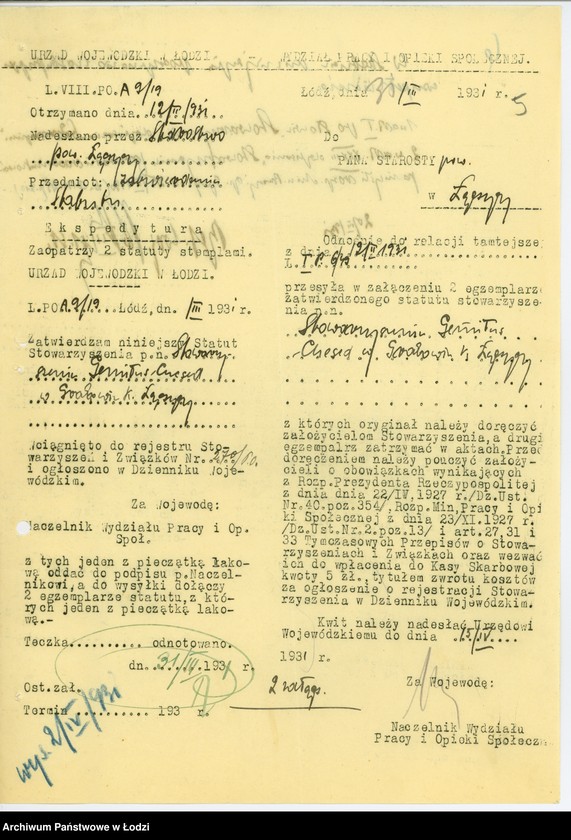 URZĄD WOJEWÓDZKI W ŁODZI. - WYDZIAŁ PRACY I OPIEKI SPOŁECZNEJ.
L.VIII.PO.A 2/19
Łódź, dnia /III 1931 r.
5
Otrzymano dnia..12/II/931
Nadesłano przez Starostwo
pow. Łęczycy
Przedmiot:
Ekspedytura
Zaopatrzy 2 statuty stemplami.
URZĄD WOJEWÓDZKI W ŁODZI.
L.PO.A.2/19...Łódź, dn. /III 1931 r.
Zatwierdzam niniejszy Statut
Stowarzyszenia p.n. Stowarzy-
szenie Gemilus-Chesed
w Grabowie k. Łęczycy
Wciągnięto do rejestru Sto-
warzyszeń i Związków Nr.
i ogłoszono w Dzienniku Woje-
wódzkim.
Za Wojewodę:
Naczelnik Wydziału Pracy i Op.
Społ.
z tych jeden z pieczątką lako-
wą oddać do podpisu p.Naczel-
nikowi, a do wysyłki dołączy
2 egzemplarze statutu, z któ-
rych jeden z pieczątką lako-
wą.-
Teczka.......... odnotowano.
dn. 31/III 1931 r.
Ost.zał.
Termin .......... 193 r.
wys. 2/IV/931
Do
PANA STAROSTY pow.
w Łęczycy
Odnośnie do relacji tamtejsze
z dnia 12/II 1931
L.
przesyła w załączeniu 2 egzemplarze
zatwierdzonego statutu stowarzysze-
nia p.n.
Stowarzyszenie Gemilus
-Chesed w Grabowie k. Łęczycy
z których oryginał należy doręczyć
założycielom Stowarzyszenia, a drugi
egzemplarz zatrzymać w aktach. Przed
doręczeniem należy pouczyć założy-
cieli o obowiązkach wynikających
z Rozp.Prezydenta Rzeczypospolitej
z dnia dnia 22/IV,1927 r./Dz.Ust.
Nr.40.poz.354/, Rozp.Min,Pracy i Opi
ki Społecznej z dnia 23/XI.1927 r.
/Dz.Ust.Nr.2.poz.13/ i art.27,31 i
33 Tymczasowych Przepisów o Stowa-
rzyszeniach i Związkach oraz wezwać
ich do wpłacenia do Kasy Skarbowej
kwoty 5 zł., tytułem zwrotu kosztów
za ogłoszenie o rejestracji Stowa-
rzyszenia w Dzienniku Wojewódzkim.
Kwit należy nadesłać Urzędowi
Wojewódzkiemu do dnia 15/IV.....
1931 r.
Za Wojewodę:
2 załącz.
Naczelnik Wydziału
Pracy i Opieki Społeczn
Archiwum Państwowe w Łodzi